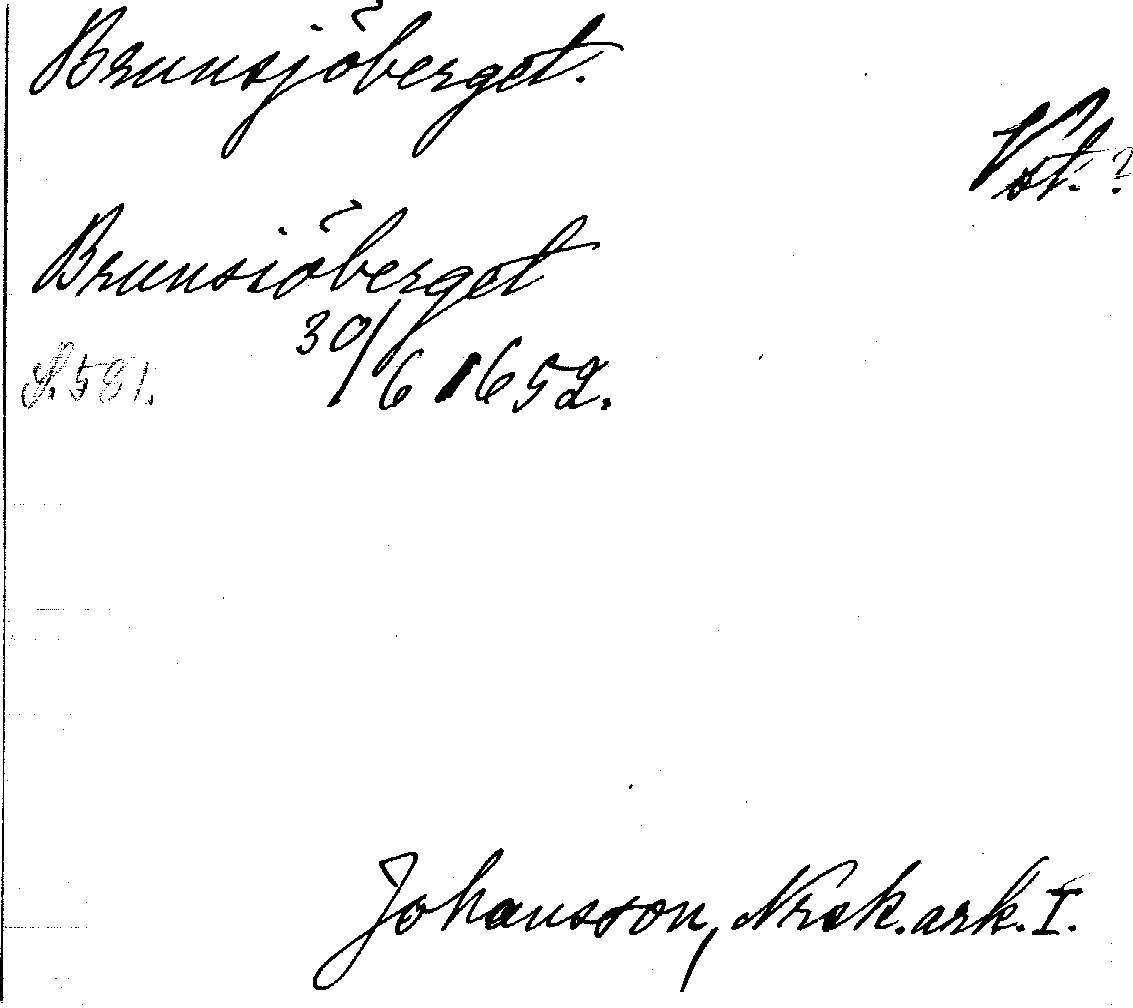 Brunsjöberget.
Vst.?
Brunsiöberget
30/6 1652.
S. 581.
Johansson, Nrsk. ark. I.